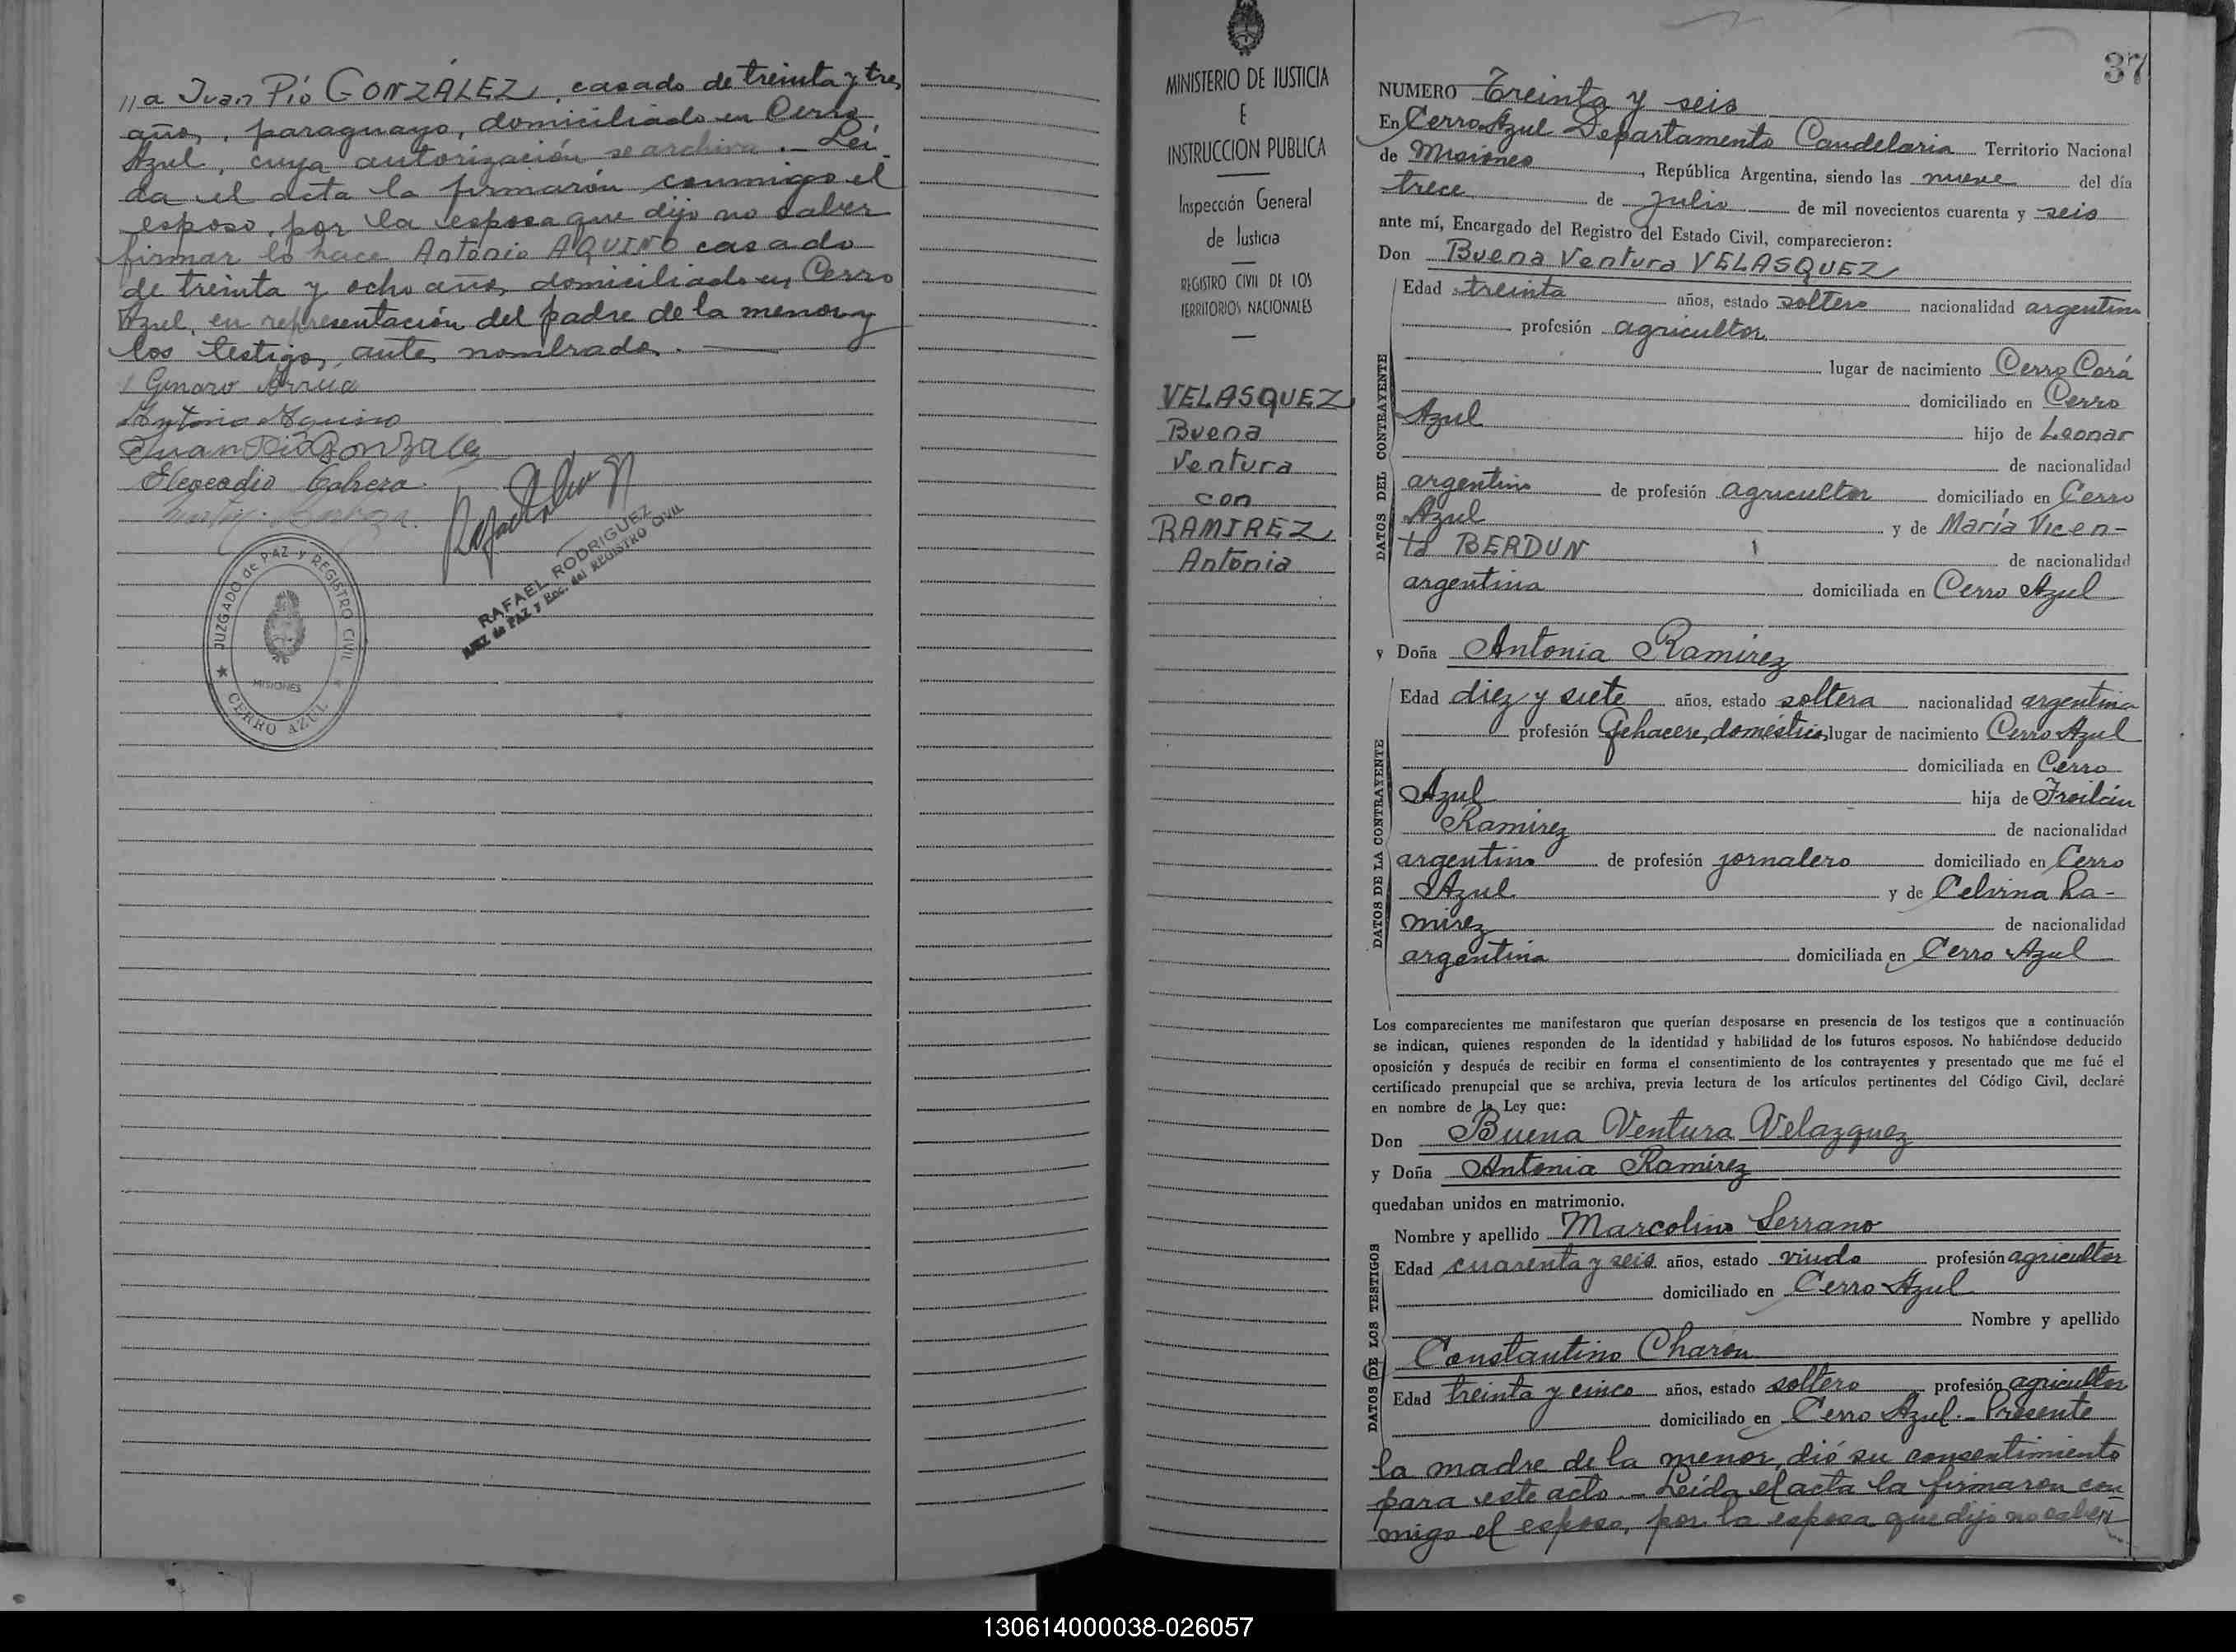 //a Juan Pío GONZÁLEZ, casado de treinta y tres
años, paraguayo, domiciliado en Cerro
Azul, cuya autorización se archiva.- Leí
da el acta la firmarón conmigo el
esposo, por la esposa que dijo no saber
firmar lo hace Antonio AQUINO casado
de treinta y ocho años, domiciliado en Cerro
Azul, en representación del padre de la menor y
los testigos antes nombrados.
Genaro Arrúa
Antonio Aquino
Juan Pio Gonzalez
Eleocadio Cabrera
RAFAEL RODRIGUEZ
JUEZ de PAZ y Enc. del REGISTRO CIVIL
JUZGADO de PAZ y REGISTRO CIVIL
MISIONES
CERRO AZUL
MINISTERIO DE JUSTICIA
E
INSTRUCCION PUBLICA
Inspección General
de Justicia
REGISTRO CIVIL DE LOS
TERRITORIOS NACIONALES
VELASQUEZ
Buena
Ventura
con
RAMIREZ
Antonia
37
NUMERO Treinta y seis
En Cerro Azul Departamento Candelaria Territorio Nacional
de Misiones, República Argentina, siendo las nueve del día
trece de Julio de mil novecientos cuarenta y seis
ante mí, Encargado del Registro del Estado Civil, comparecieron:
Don Buena Ventura VELASQUEZ
DATOS DEL CONTRAYENTE
Edad treinta años, estado soltero nacionalidad argentino
profesión agricultor
lugar de nacimiento Cerro Corá
domiciliado en Cerro
Azul hijo de Leonar
de nacionalidad
argentino de profesión agricultor domiciliado en Cerro
Azul y de María Vicen-
ta BERDUN de nacionalidad
argentina domiciliada en Cerro Azul
y Doña Antonia Ramirez
DATOS DE LA CONTRAYENTE
Edad diez y siete años, estado soltera nacionalidad argentina
profesión Qehaceres domésticos lugar de nacimiento Cerro Azul
domiciliada en Cerro
Azul hija de Froilán
Ramirez de nacionalidad
argentino de profesión jornalero domiciliado en Cerro
Azul y de Celvina Ra-
mirez de nacionalidad
argentina domiciliada en Cerro Azul
Los comparecientes me manifestaron que querían desposarse en presencia de los testigos que a continuación
se indican, quienes responden de la identidad y habilidad de los futuros esposos. No habiéndose deducido
oposición y después de recibir en forma el consentimiento de los contrayentes y presentado que me fué el
certificado prenupcial que se archiva, previa lectura de los artículos pertinentes del Código Civil, declaré
en nombre de la Ley que:
Don Buena Ventura Velazquez
y Doña Antonia Ramirez
quedaban unidos en matrimonio.
DATOS DE LOS TESTIGOS
Nombre y apellido Marcolino Serrano
Edad cuarenta y seis años, estado viudo profesión agricultor
domiciliado en Cerro Azul
Nombre y apellido
Constantino Charon
Edad treinta y cinco años, estado soltero profesión agricultor
domiciliado en Cerro Azul.- Presente
la madre de la menor, dió su consentimiento
para este acto.- Leída el acta la firmaron con
migo el esposo, por la esposa que dijo no saber
130614000038-026057